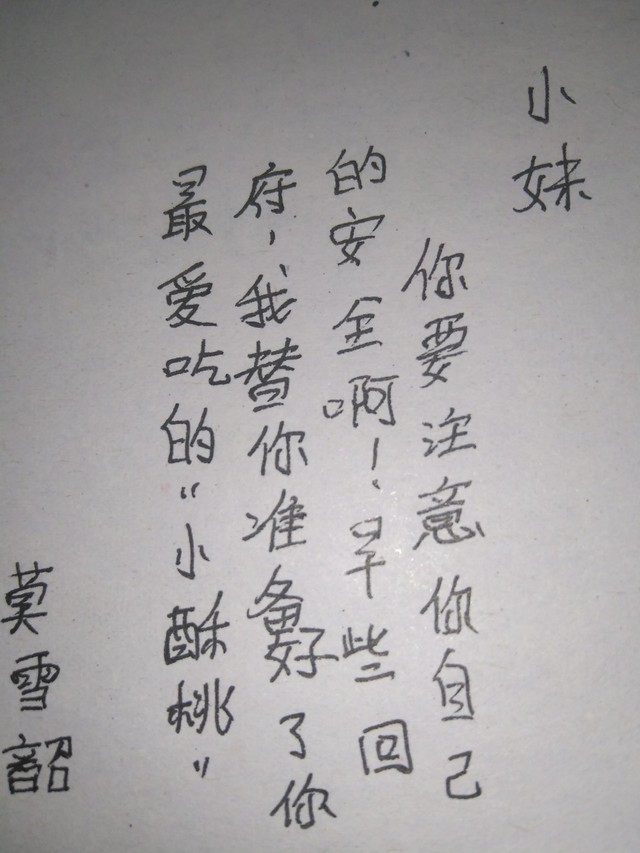 小妹
你要注意你自己
的安全啊！早些回
府，我替你准备好了你
最爱吃的“小酥桃”
莫雪韶